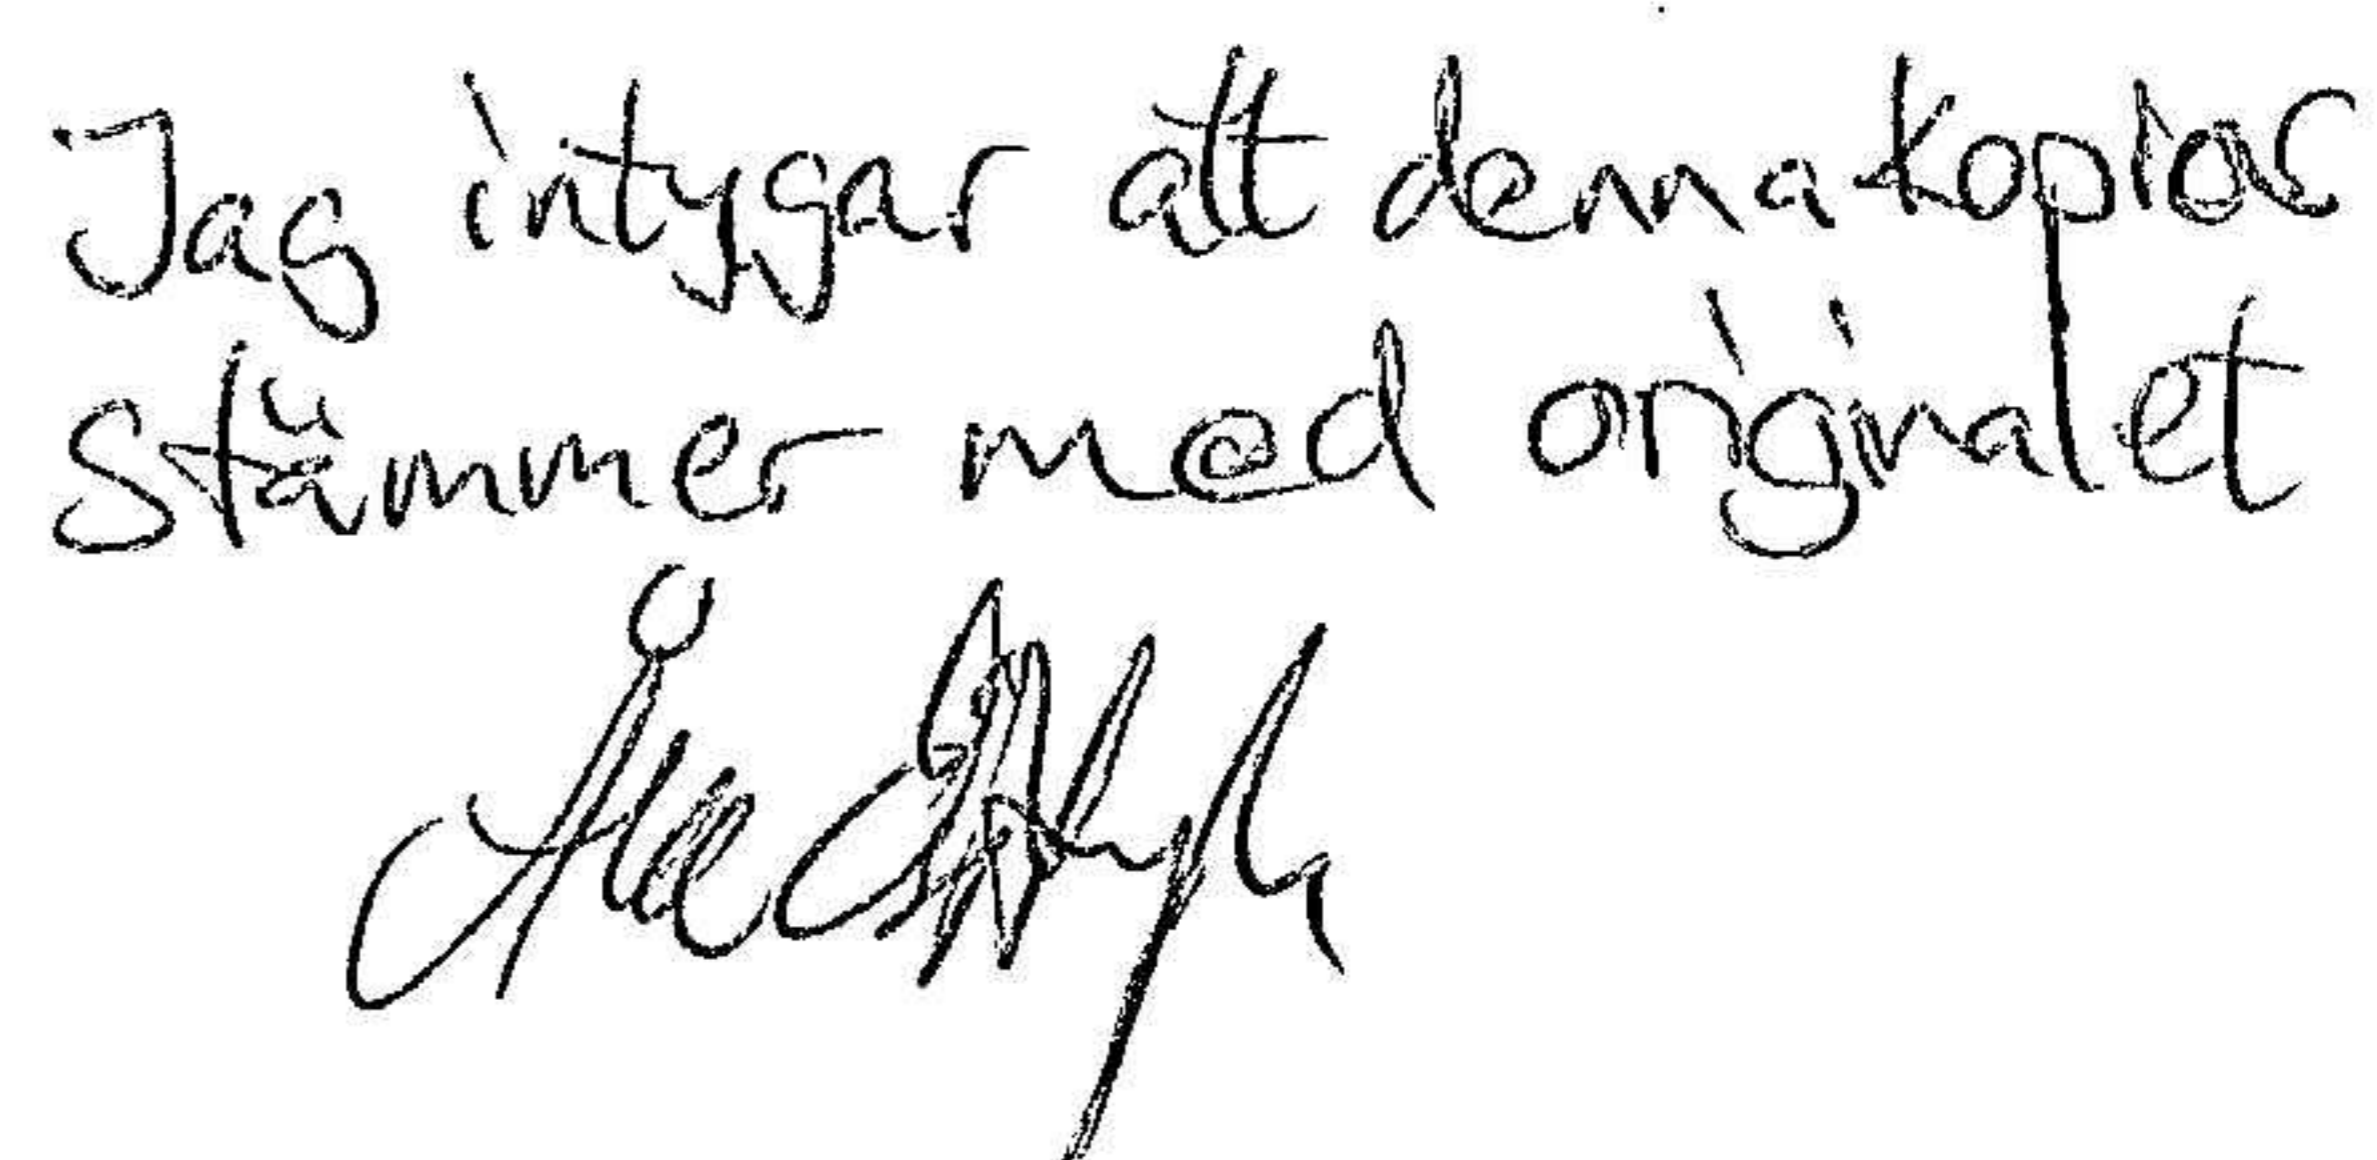 Jag intygar att denna kopiar
stämmer med originalet